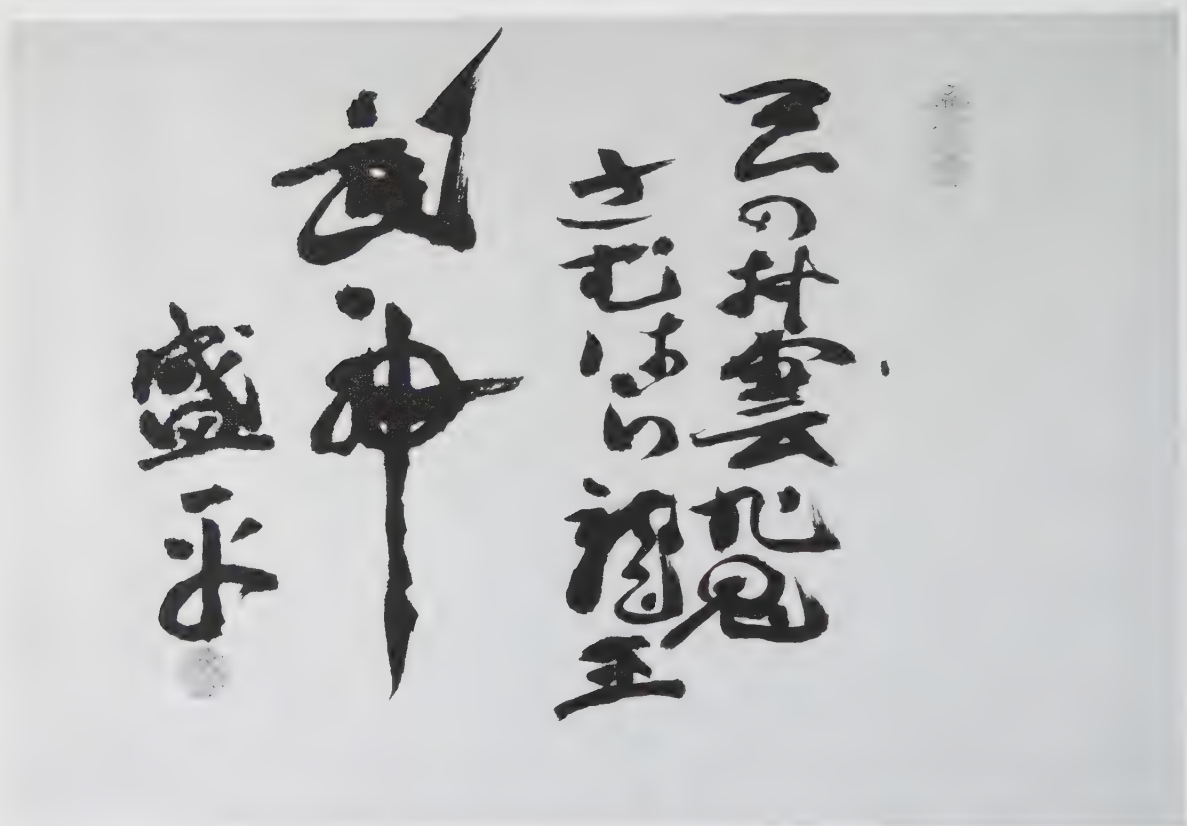 天の村雲九鬼
さむはら龍王
武神
盛平